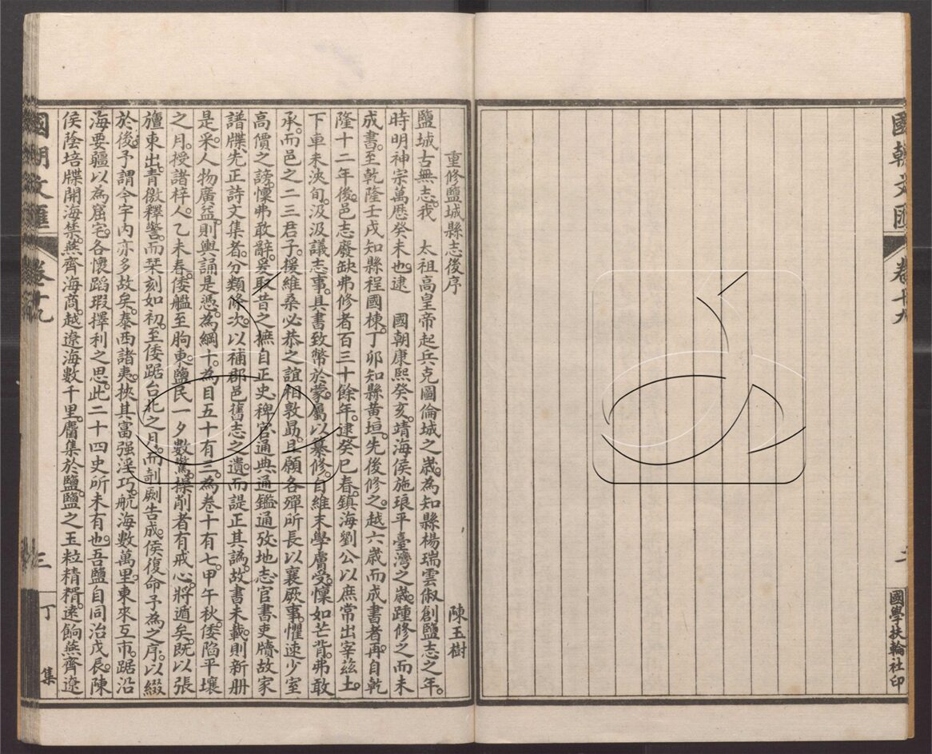 國朝文匯
卷十九
二
國學扶輪社印
重修鹽城縣志後序
陳玉樹
鹽城古無志我 太祖高皇帝起兵克圖倫城之歲為知縣楊瑞雲俶創鹽志之年
時明神宗萬厯癸未也逮 國朝康熙癸亥靖海侯施琅平臺灣之歲踵修之而未
成書至乾隆壬戌知縣程國棟丁卯知縣黃垣先後修之越六歲而成書者再自乾
隆十二年後邑志廢缺弗修者百三十餘年逮癸巳春鎮海劉公以庶常出宰茲土
下車未浹旬汲汲議志事具書致幣於蒙屬以纂修自維末學膚受懍如芒背弗敢
承而邑之二三君子援維桑必恭之誼相敦勗且願各殫所長以襄厥事懼速少室
高價之謗懍弗敢辭爰取昔之撫自正史稗官通典通鑑通攷地志官書吏牘故家
譜牒先正詩文集者分類條次以補郡邑舊志之遺而諟正其譌故書未載則新冊
是采人物廣益則輿誦是憑為綱十為目五十有三為卷十有七甲午秋倭陷平壤
之月授諸梓人乙未春倭艦至朐東鹽民一夕數驚操削者有戒心將遁矣既以張
旜東出青徼釋警而栞刻如初至倭踞台北之月而剞劂告成侯復命予為之序以綴
於後予謂今宇內亦多故矣泰西諸夷挾其富强淫巧航海數萬里東來互市踞沿
海要疆以為窟宅各懷蹈瑕擇利之思此二十四史所未有也吾鹽自同治戊辰陳
侯蔭培牒開海禁燕齊海商越遼海數千里麕集於鹽鹽之玉粒精糈遠餉燕齊遼
國朝文匯
卷十九
三
丁
集